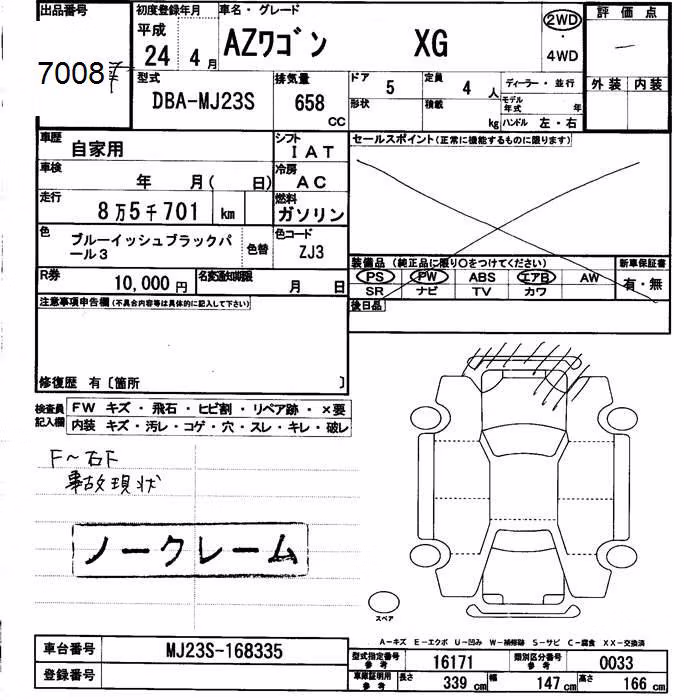 出品番号
7008
初度登録年月
平成
24 4 月
車名・グレード
AZワゴン XG
2WD
・
4WD
評価点
—
外装 内装
型式
DBA-MJ23S
排気量
658
CC
ドア 5
定員 4 人
形状
積載 kg
ディーラー・並行
モデル年式 年
ハンドル 左・右
車歴
自家用
シフト
IAT
セールスポイント(正常に機能するものに限ります)
車検
年 月( 日)
冷房
AC
走行
8万5千701 km
燃料
ガソリン
色
ブルーイッシュブラックパール3
色替
色コード
ZJ3
装備品 (純正品に限り○をつけてください)
PS PW ABS エアB AW
SR ナビ TV カワ
新車保証書
有・無
R券
10,000 円
名変通知期限
月 日
後日品
注意事項申告欄(不具合内容等は具体的に記入して下さい)
修復歴 有〔箇所 〕
検査員記入欄
FW キズ・飛石・ヒビ割・リペア跡・×要
内装 キズ・汚レ・コゲ・穴・スレ・キレ・破レ
F〜右F
事故現状
ノークレーム
スペア
A−キズ E−エクボ U−凹み W−補修跡 S−サビ C−腐食 XX−交換済
車台番号
MJ23S-168335
登録番号
型式指定番号 参考
16171
類別区分番号 参考
0033
車庫証明用 参考
長さ 339 cm
幅 147 cm
高さ 166 cm